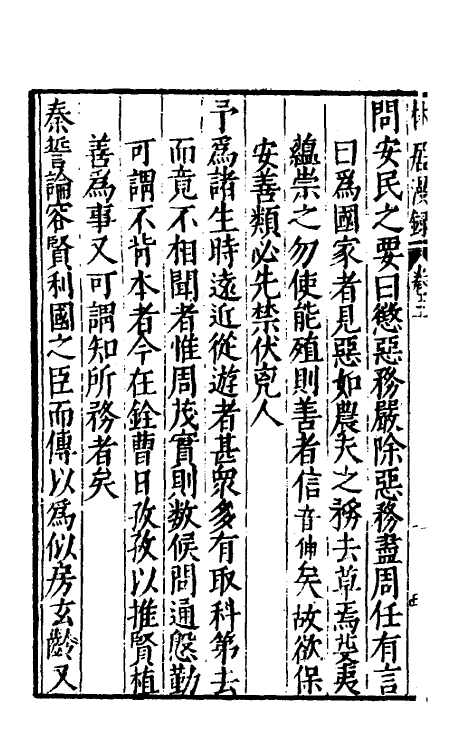 林居漫錄 卷三
問安民之要曰懲惡務嚴除惡務盡周任有言
曰爲國家者見惡如農夫之務去草焉芟夷
蘊崇之勿使能殖則善者信音伸矣故欲保
安善類必先禁伏兇人
予爲諸生時遠近從遊者甚衆多有取科第去
而竟不相聞者惟周茂實則数候問通慇勤
可謂不肯本者今在銓曹日孜孜以推賢植
善爲事又可謂知所務者矣
秦誓論容賢利國之臣而傳以爲似房玄齡又